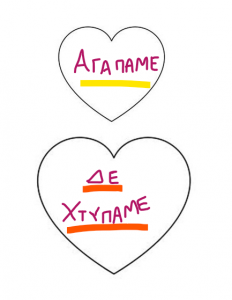 ΑΓΑΠΑΜΕ
ΔΕ
ΧΤΥΠΑΜΕ